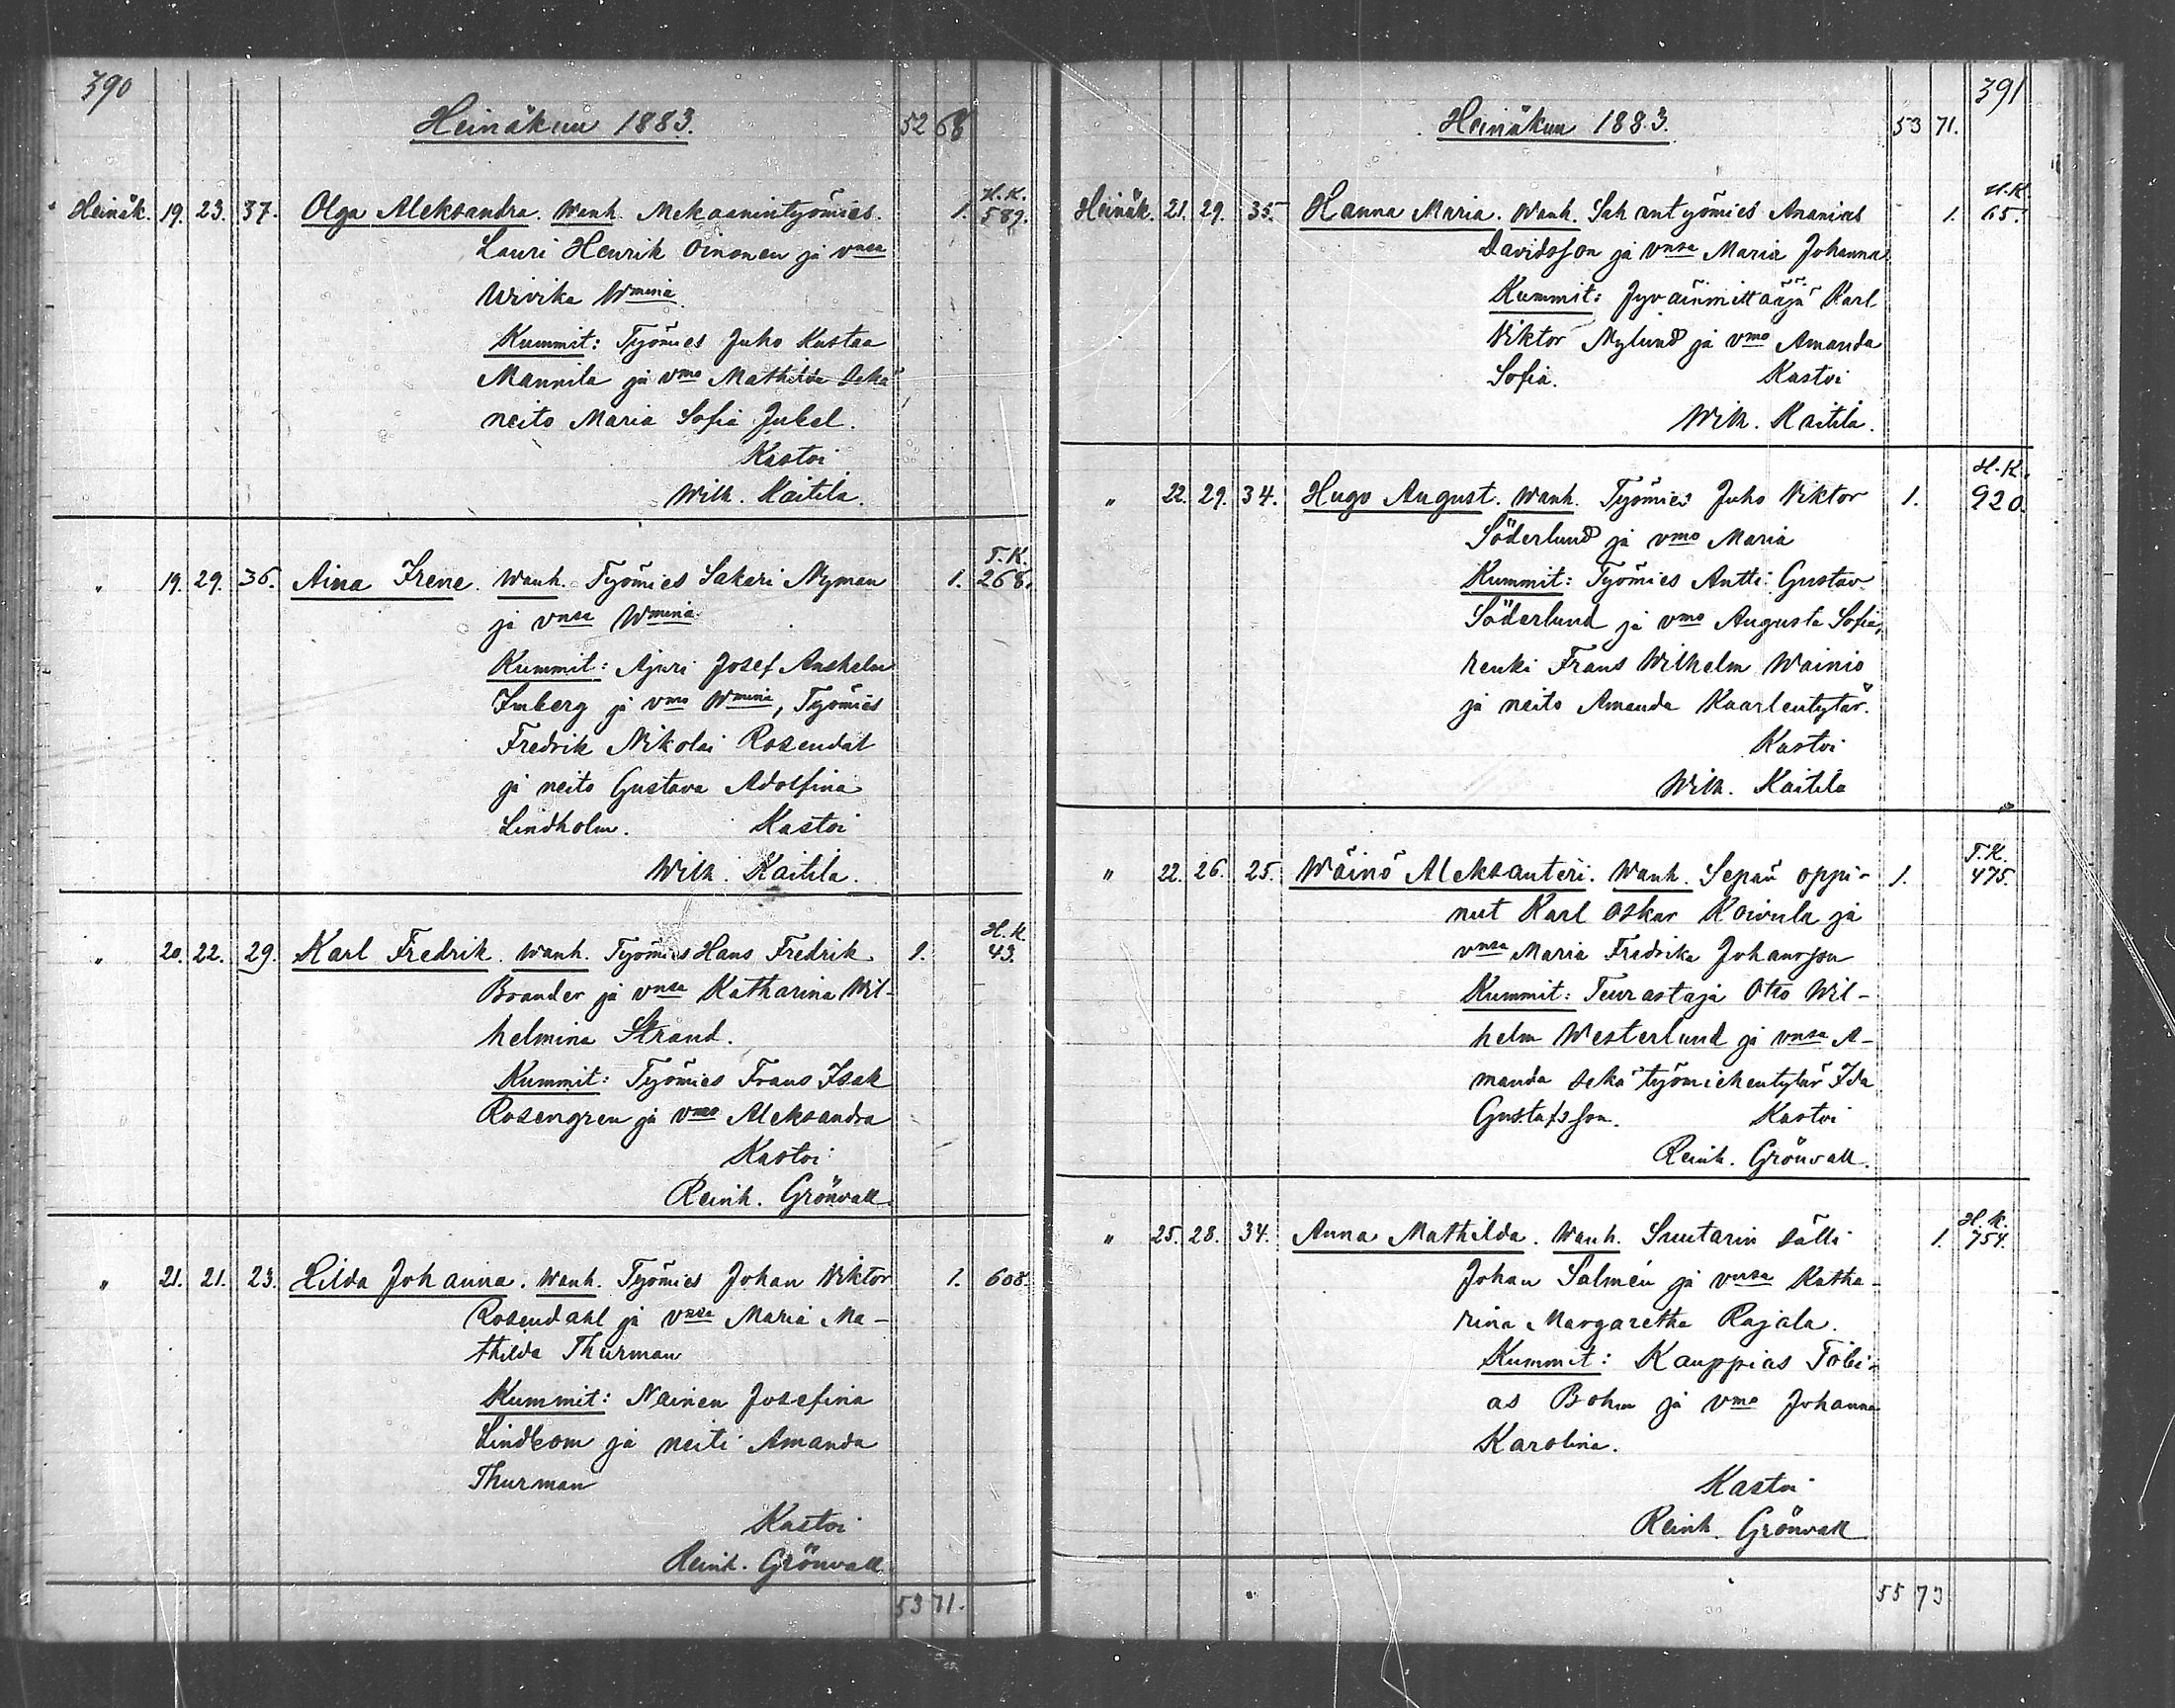 390
Heinäkuu 1883. 52 68
H.K.
Heinäk. 19. 23. 37. Olga Aleksandra. Wanh. Mekaanintyömies. 1. 589.
Lauri Henrik Oinonen ja vnsa
Wivika Wmina.
Kummit: Työmies Juho Kustaa
Mannila ja vmo Mathilda sekä
neito Maria Sofia Jukel.
Kastoi
Wilh. Kaitila.
T.K.
" 19. 29. 36. Aina Irene. Wanh. Työmies Sakari Nyman 1. 268.
ja vnsa Wmina.
Kummit: Ajuri Josef Anshelm
Imberg ja vmo Wmina, Työmies
Fredrik Nikolai Rosendal
ja neito Gustava Adolfina
Lindholm. Kastoi
Wilh. Kaitila.
H.K.
" 20. 22. 29. Karl Fredrik. Wanh. Työmies Hans Fredrik 1. 43.
Brander ja vnsa Katharina Wil-
helmina Strand.
Kummit: Työmies Frans Isak
Rosengren ja vmo Aleksandra
Kastoi
Reinh. Grönvall.
" 21. 21. 23. Hilda Johanna. Wanh. Työmies Johan Viktor 1. 608.
Rosendahl ja vnsa Maria Ma-
thilda Thurman
Kummit: Nainen Josefina
Lindbom ja neiti Amanda
Thurman
Kastoi
Reinh. Grönvall.
53 71.
391
Heinäkuu 1883. 53 71.
H.K.
Heinäk. 21. 29. 35. Hanna Maria. Wanh. Sahantyömies Ananias 1. 65.
Davidsson ja vnsa Maria Johanna
Kummit: Jyväinmittaaja Karl
Viktor Nylund ja vmo Amanda
Sofia. Kastoi
Wilh. Kaitila.
H.K.
" 22. 29. 34. Hugo August. Wanh. Työmies Juho Viktor 1. 920.
Söderlund ja vmo Maria
Kummit: Työmies Antti Gustav
Söderlund ja vmo Augusta Sofia,
renki Frans Wilhelm Wainio
ja neito Amanda Kaarlentytär.
Kastoi
Wilh. Kaitila
T.K.
" 22. 26. 25. Wäinö Aleksanteri. Wanh. Sepän oppi- 1. 475.
nut Karl Oskar Koivula ja
vnsa Maria Fredrika Johansson
Kummit: Teurastaja Otto Wil-
helm Westerlund ja vnsa A-
manda sekä työmiehentytär Ida
Gustafsson. Kastoi
Reinh. Grönvall.
H.K.
" 25. 28. 34. Anna Mathilda. Wanh. Suutarin sälli 1. 754.
Johan Salmén ja vnsa Katha-
rina Margaretha Rajala.
Kummit: Kauppias Tobi-
as Bohm ja vmo Johanna
Karolina.
Kastoi
Reinh. Grönvall
55 73